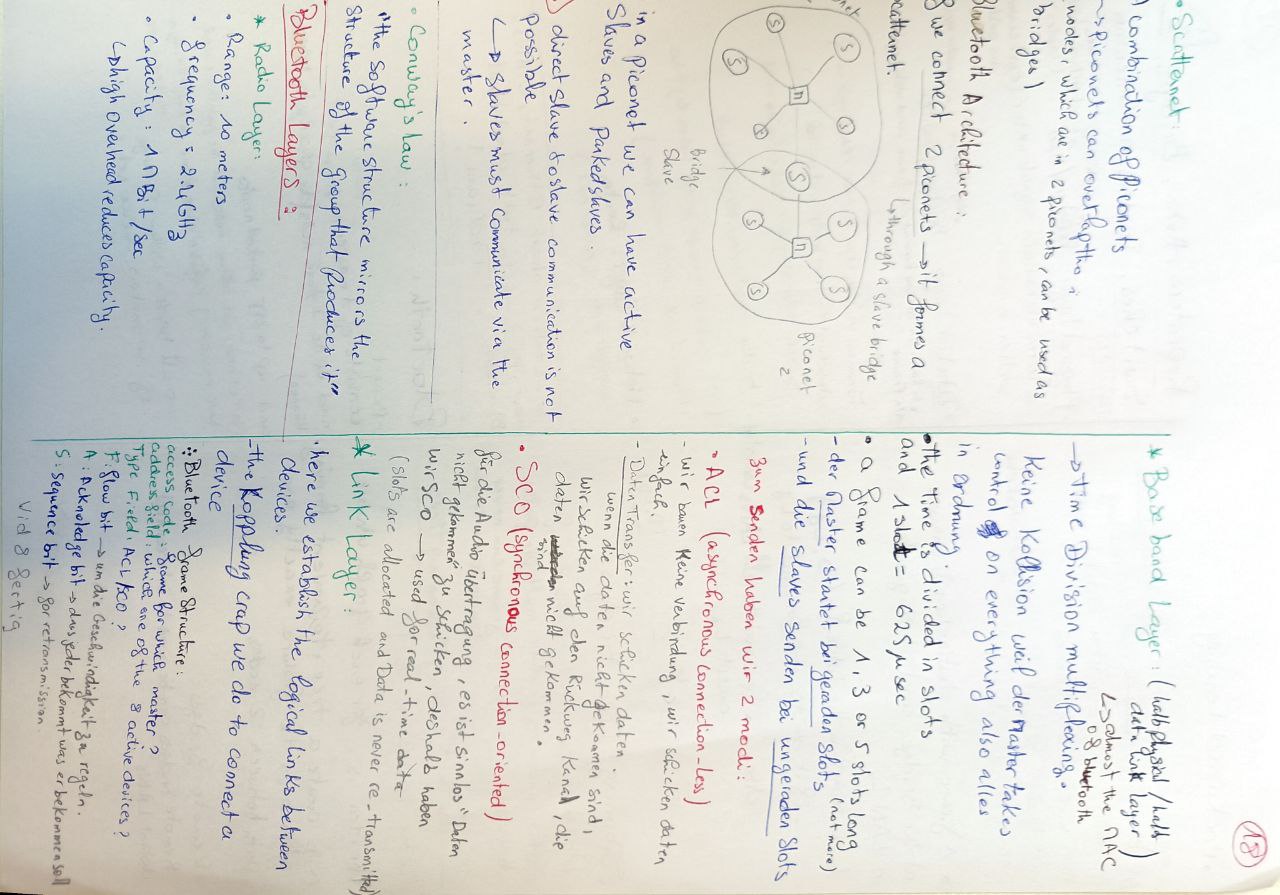 18
• Scatternet:
A combination of piconets
→ piconets can overlap tho
nodes, which are in 2 piconets, can be used as
bridges)
Bluetooth Architecture:
if we connect 2 piconets → it formes a
scatternet.
↳ through a slave bridge
S
S
S
M
S
S
S
S
S
M
S
S
Bridge
Slave
Piconet
2
in a piconet we can have active
Slaves and Parked slaves.
direct slave to slave communication is not
possible
↳ Slaves must communicate via the
master.
• Conway's law:
"the software structure mirrors the
structure of the group that produces it"
Bluetooth Layers:
* Radio Layer:
• Range: 10 meters
• frequency: 2.4 GHz
• Capacity: 1 MBit/sec
↳ high overhead reduces capacity.
* Base band Layer: (halb physkal/halb
data link layer)
↳ almost the MAC
of bluetooth
→ Time Division multiplexing.
Keine Kollision weil der Master takes
control on everything also alles
in ordnung
• the time is divided in slots
and 1 slot = 625 µsec
• a frame can be 1, 3 or 5 slots long
(not more)
- der Master startet bei geraden slots
- und die slaves senden bei ungeraden slots
zum senden haben wir 2 modi:
• ACL (asynchronous connection-less)
- wir bauen keine verbindung, wir schicken daten
einfach.
- Daten Transfer: wir schicken daten.
wenn die daten nicht gekommen sind,
wir schicken auf den Rückweg Kanal, die
daten nicht gekommen.
sind
• SCO (synchronous connection-oriented)
für die Audio übertragung, es ist sinnlos "Daten
nicht gekommen" zu schicken, deshalb haben
wir SCO → used for real-time data
(slots are allocated and Data is never re-transmitted)
* Link Layer:
• here we establish the logical links between
devices.
- the Kopplung crap we do to connect a
device
∴ Bluetooth frame structure:
access code: frame for which master?
address field: which one of the 8 active devices?
Type field: ACL/SCO?
F: flow bit → um die Geschwindigkeit zu regeln.
A: Acknoledge bit → dass jeder bekommt was er bekommen soll
S: Sequence bit → for retransmission.
Vid 8 fertig